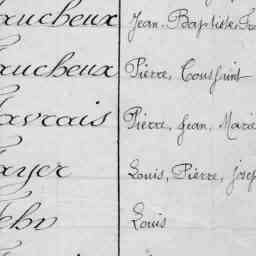 aucheux Jean, Baptiste, Fr
aucheux Pierre, Toussaint
avrais Pierre, Jean, Marie
ayer Louis, Pierre, Josep
Louis